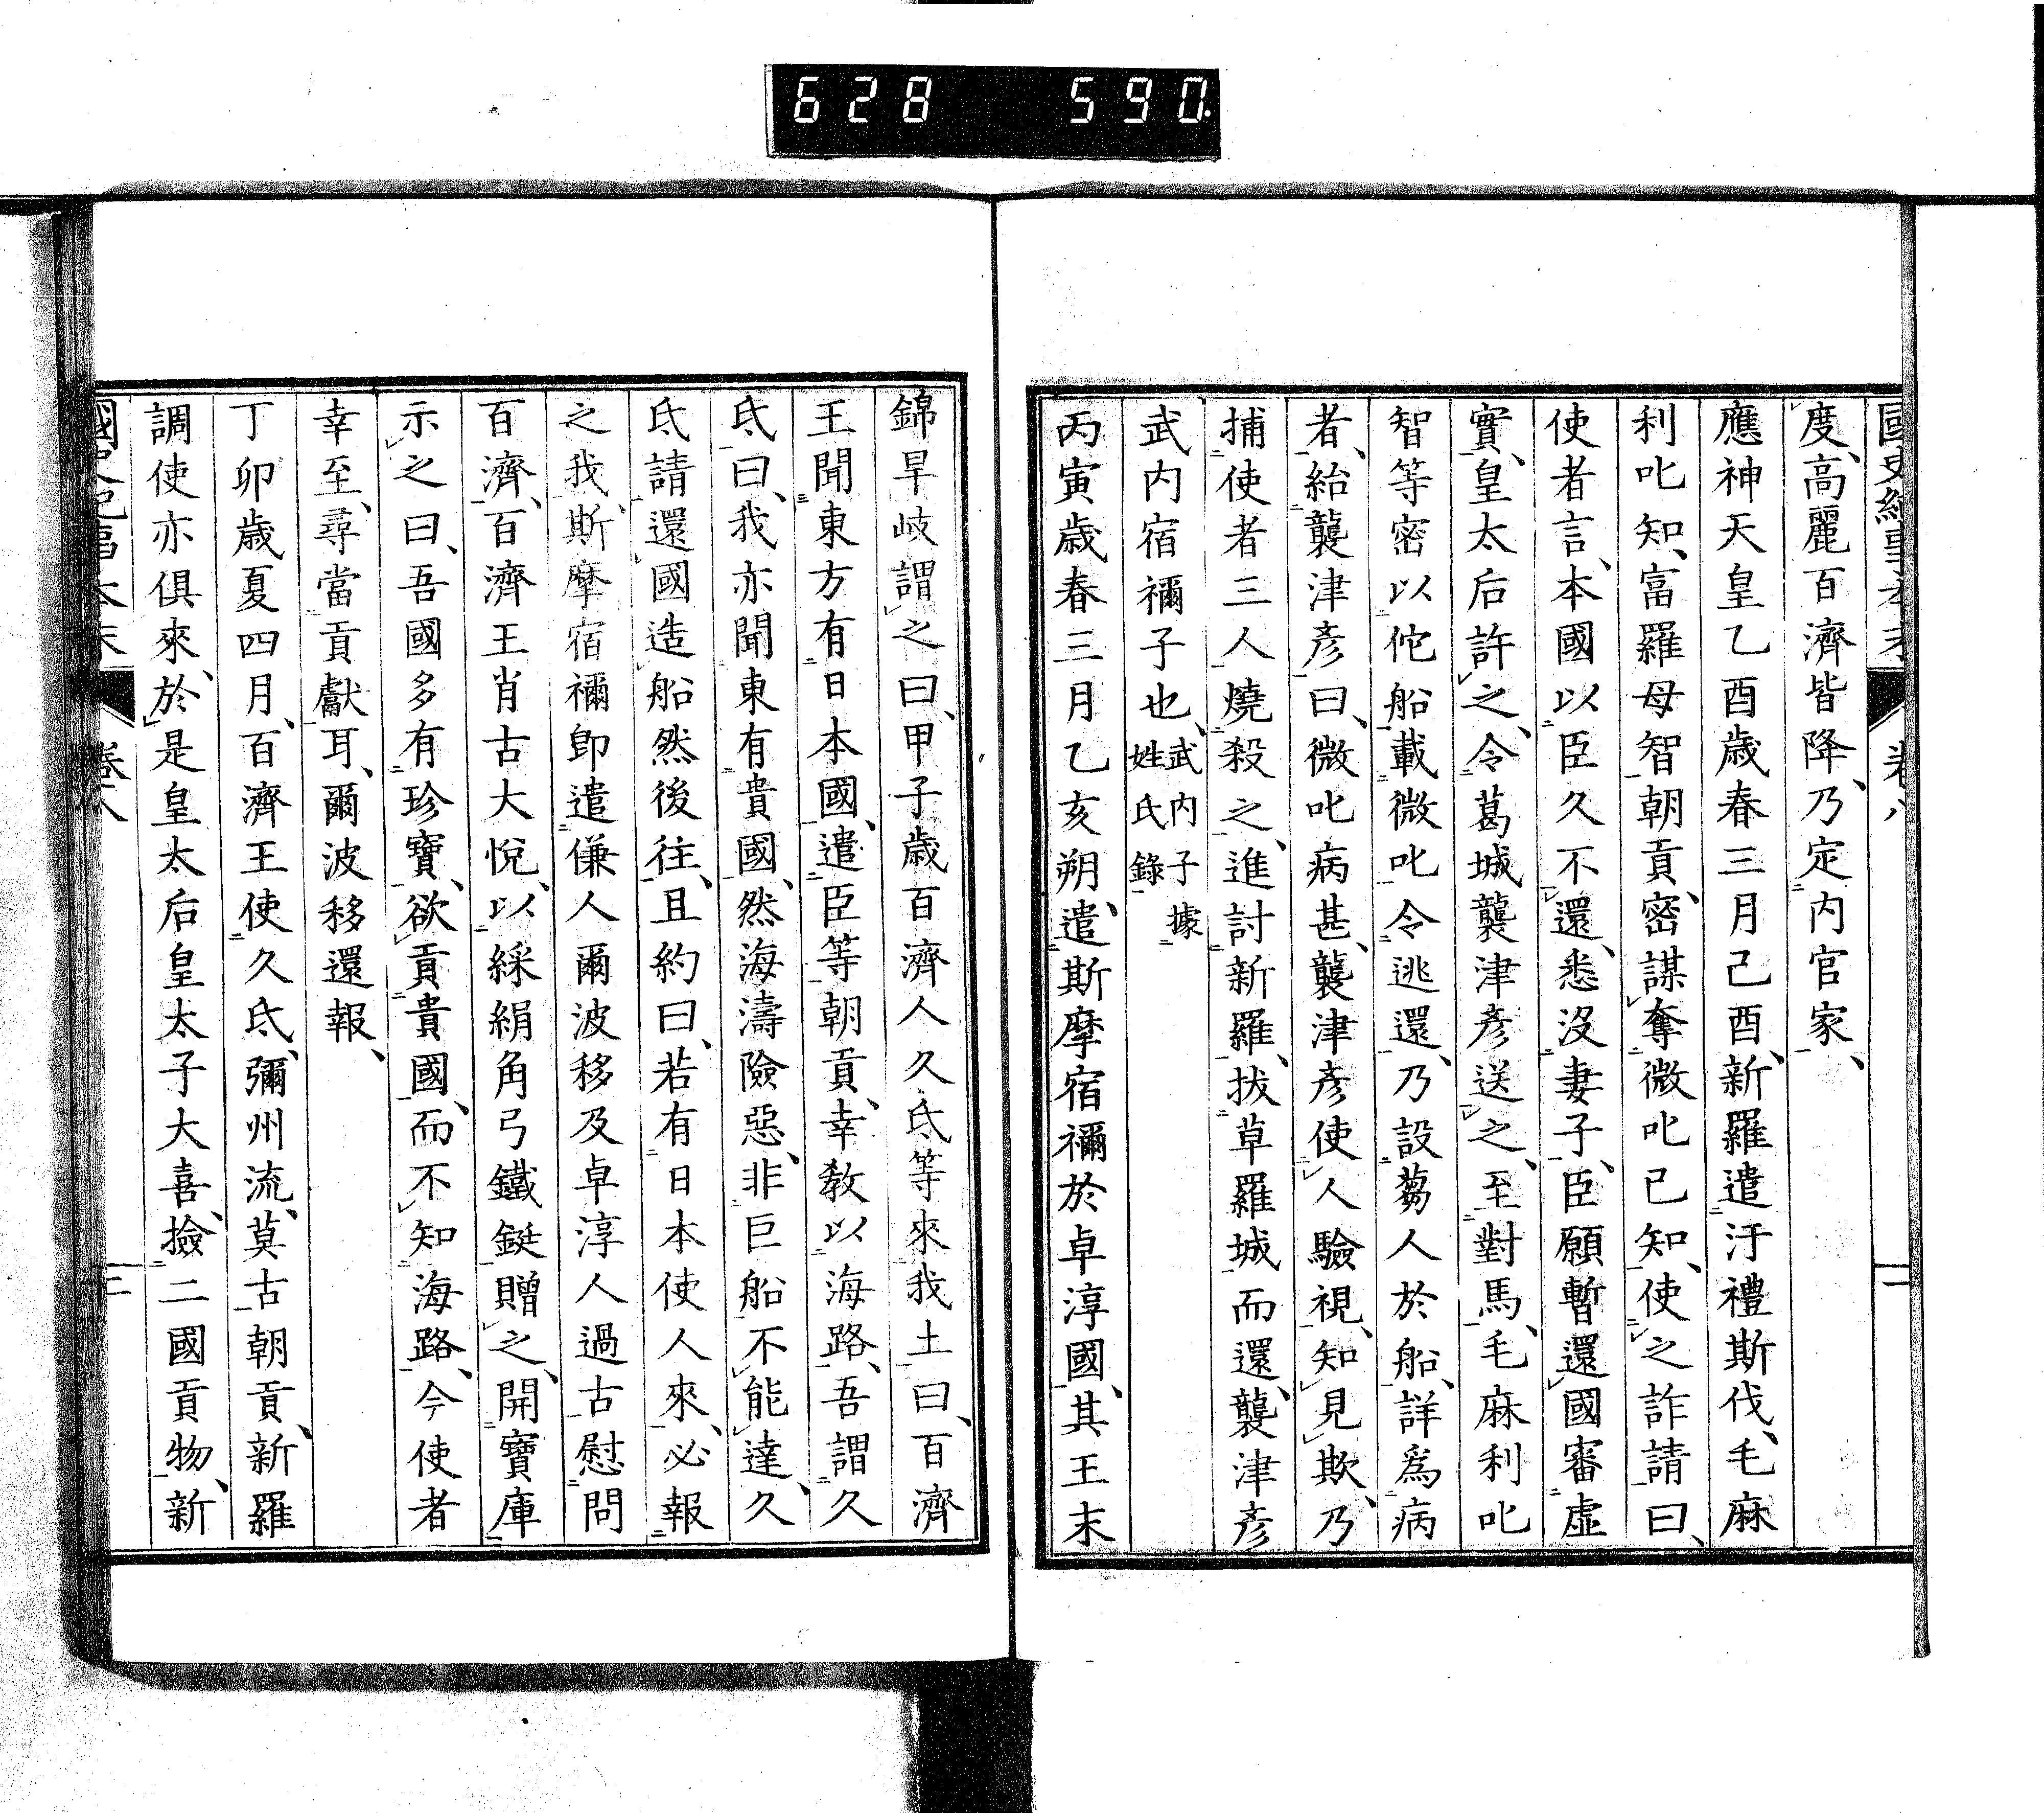 628 590
國史紀事本末 卷八 二
度、高麗百濟皆降、乃定內官家、
應神天皇乙酉歲春三月己酉、新羅遣汙禮斯伐、毛麻
利叱知、富羅母智朝貢、密謀奪微叱已知、使之詐請曰、
使者言、本國以臣久不還、悉沒妻子、臣願暫還國審虛
實、皇太后許之、令葛城襲津彥送之、至對馬、毛麻利叱
智等密以佗船載微叱令逃還、乃設蒭人於船、詳爲病
者、紿襲津彥曰、微叱病甚、襲津彥使人驗視、知見欺、乃
捕使者三人燒殺之、進討新羅、拔草羅城而還、襲津彥
武內宿禰子也、武內子據姓氏錄
丙寅歲春三月乙亥朔、遣斯摩宿禰於卓淳國、其王末
錦旱岐謂之曰、甲子歲百濟人久氐等來我土曰、百濟
王聞東方有日本國、遣臣等朝貢、幸敎以海路、吾謂久
氐曰、我亦聞東有貴國、然海濤險惡、非巨船不能達、久
氐請還國造船然後往、且約曰、若有日本使人來、必報
之我、斯摩宿禰卽遣傔人爾波移及卓淳人過古慰問
百濟、百濟王肖古大悅、以綵絹角弓鐵鋌贈之、開寶庫
示之曰、吾國多有珍寶、欲貢貴國、而不知海路、今使者
幸至、尋當貢獻耳、爾波移還報、
丁卯歲夏四月、百濟王使久氐、彌州流、莫古朝貢、新羅
調使亦俱來、於是皇太后皇太子大喜、撿二國貢物、新
國史紀事本末 卷八 三